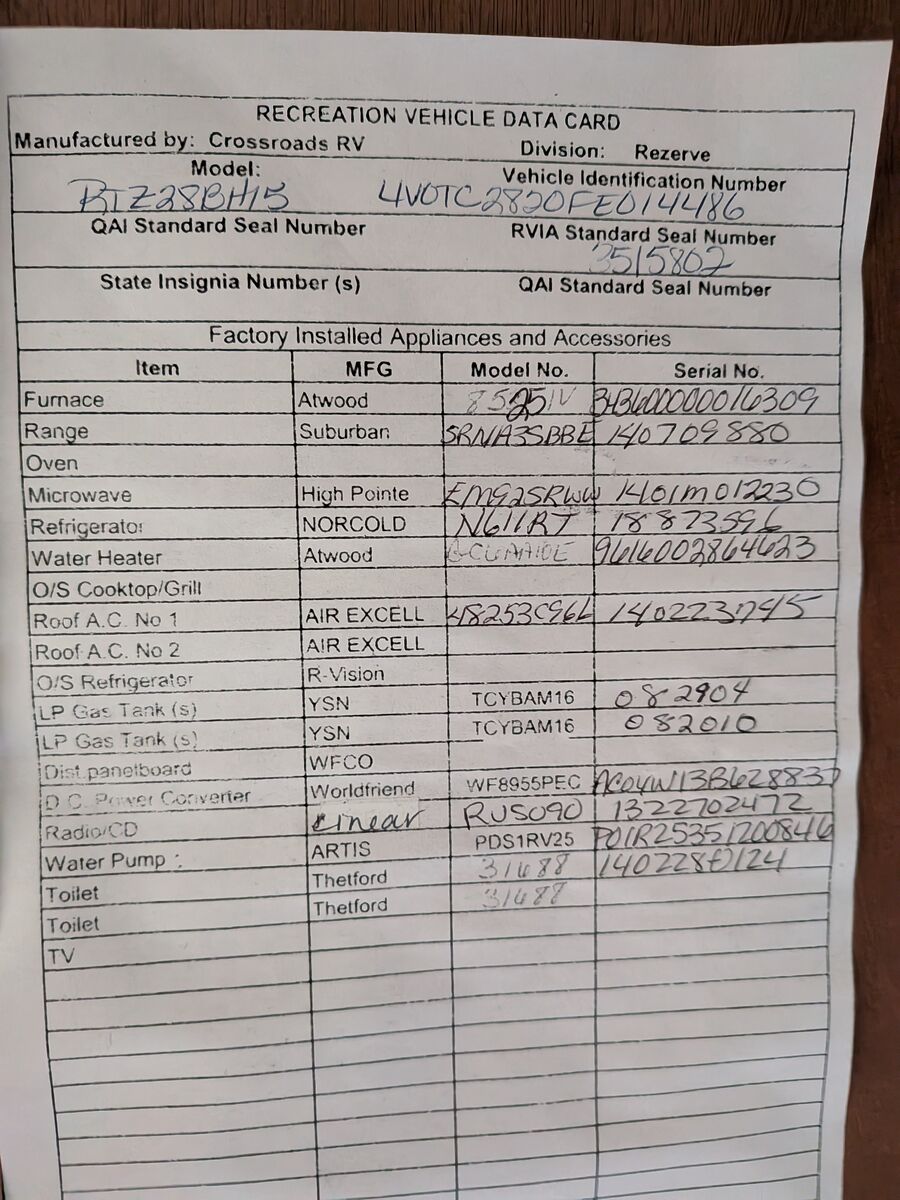 RECREATION VEHICLE DATA CARD
Manufactured by: Crossroads RV Division: Rezerve
Model: Vehicle Identification Number
RTZ28BH15 4V0TC2820FE014486
QAI Standard Seal Number RVIA Standard Seal Number
3515802
State Insignia Number (s) QAI Standard Seal Number
Factory Installed Appliances and Accessories
Item MFG Model No. Serial No.
Furnace Atwood
Range Suburban SRNA3SBBE 140709880
Oven
Microwave High Pointe EM925RWW 1401M012230
Refrigerator NORCOLD N611RT 18873596
Water Heater Atwood 9616002864623
O/S Cooktop/Grill
Roof A.C. No 1 AIR EXCELL 48253C966 140223745
Roof A.C. No 2 AIR EXCELL
O/S Refrigerator R-Vision
LP Gas Tank (s) YSN TCYBAM16 082904
LP Gas Tank (s) YSN TCYBAM16 082010
Dist.panelboard WFCO
D.C. Power Converter Worldfriend WF8955PEC
Radio/CD Linear RUS090 1322702472
Water Pump : ARTIS PDS1RV25 P01R25351200846
Toilet Thetford 31688
Toilet Thetford 31688
TV